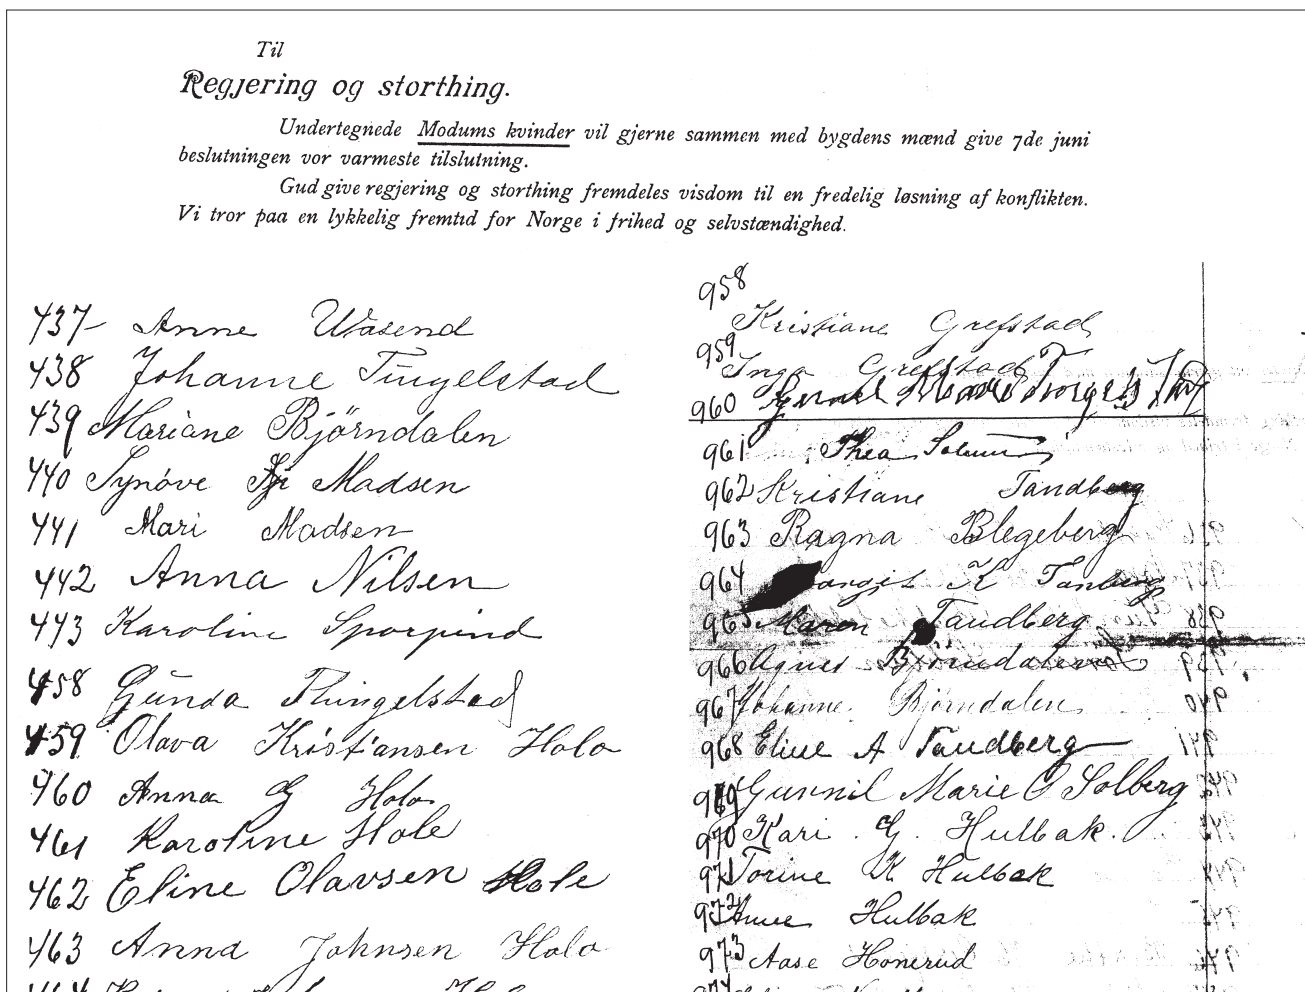 Til
Regjering og storthing.
Undertegnede Modums kvinder vil gjerne sammen med bygdens mænd give 7de juni
beslutningen vor varmeste tilslutning.
Gud give regjering og storthing fremdeles visdom til en fredelig løsning af konflikten.
Vi tror paa en lykkelig fremtid for Norge i frihed og selvstændighed.
437 Anne Wasend
438 Johanne Tingelstad
439 Mariane Bjørndalen
440 Synøve Madsen
441 Mari Madsen
442 Anna Nilsen
443 Karoline Sporpind
458 Gunda Thingelstad
459 Olava Kristiansen Holo
460 Anna G Holo
461 Karoline Hole
462 Eline Olavsen Hole
463 Anna Johnsen Holo
464
958
Kristiane Grefstad
959
Inga Grefstad
960 Marie
961 Thea
962 Kristiane Tandberg
963 Ragna Blegeberg
964 K Tanberg
965 Maren Tandberg
966 Agnes
967 Johanne Bjørndalen
968 Eline A Tandberg
969 Gunnil Marie O Solberg
970 Kari G. Hulbak.
971 Torine K Hulbak
972 Hulbak
973 Aase Honerud
974